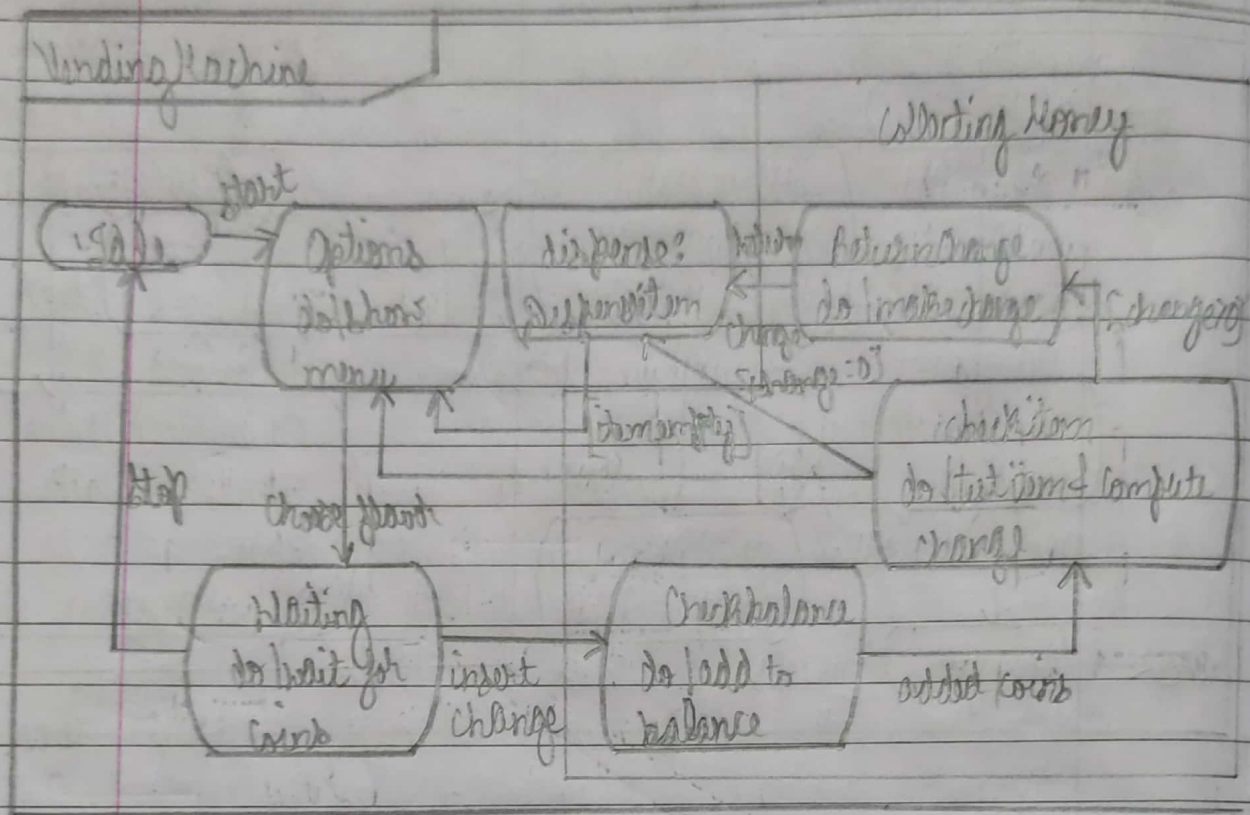 Vending Machine
Waiting Money
start
Idle
Options
do/show
menu
dispense:
Dispenseitem
Return
change
ReturnChange
do/make change
[change:0]
[itemempty]
checkitem
do/test item & compute
change
stop
Waiting
do/wait for
coins
insert
change
Checkbalance
do/add to
balance
added coins